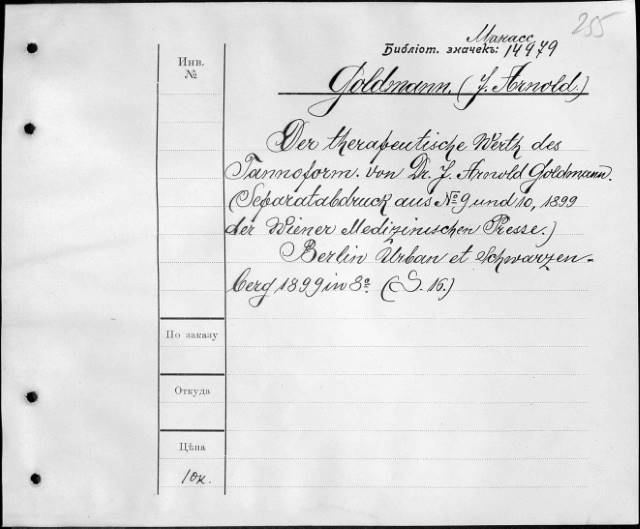 255
Манасс
Библіот. значекъ: 14979
Инв.
№
Goldmann. (J. Arnold.)
Der therapeutische Werth des
Tannoform. von Dr. J. Arnold Goldmann.
(Separatabdruck aus № 9 und 10, 1899
der Wiener Medizinischen Presse.)
Berlin Urban et Schwarzen-
berg 1899 in 8º. (S. 16.)
По заказу
Откуда
Цѣна
10к.